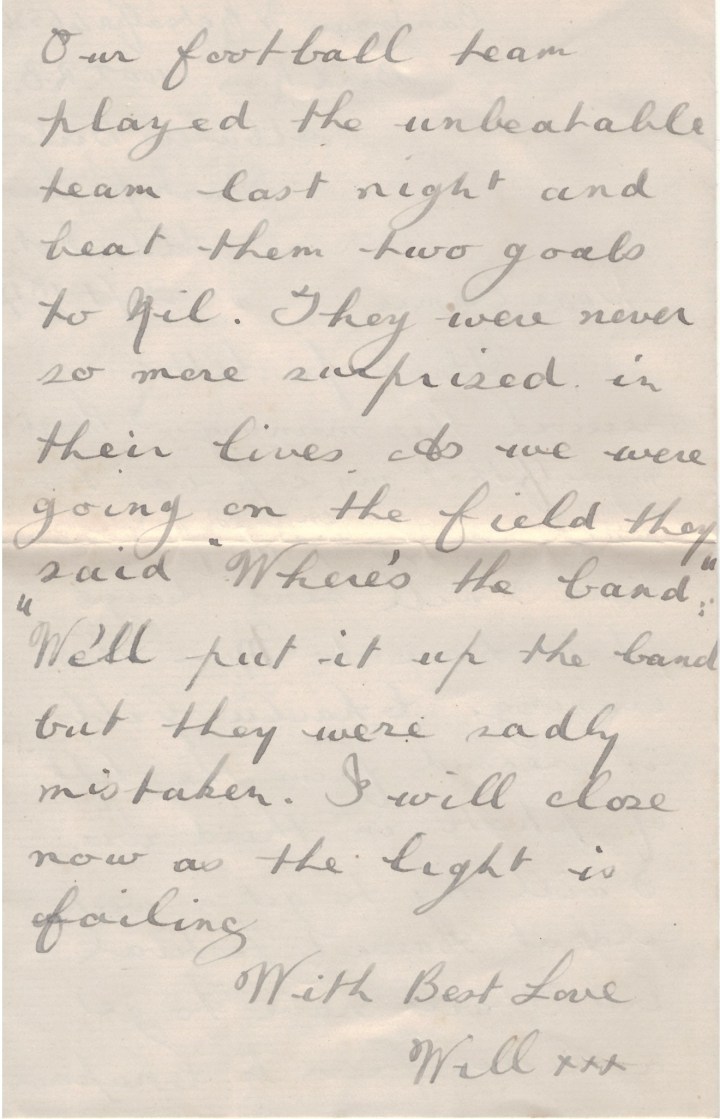 Our football team
played the unbeatable
team last night and
beat them two goals
to Nil. They were never
so more surprized in
their lives. As we were
going on the field they
said "Where's the band;"
"We'll put it up the band
but they were sadly
mistaken. I will close
now as the light is
failing
With Best Love
Will xxx